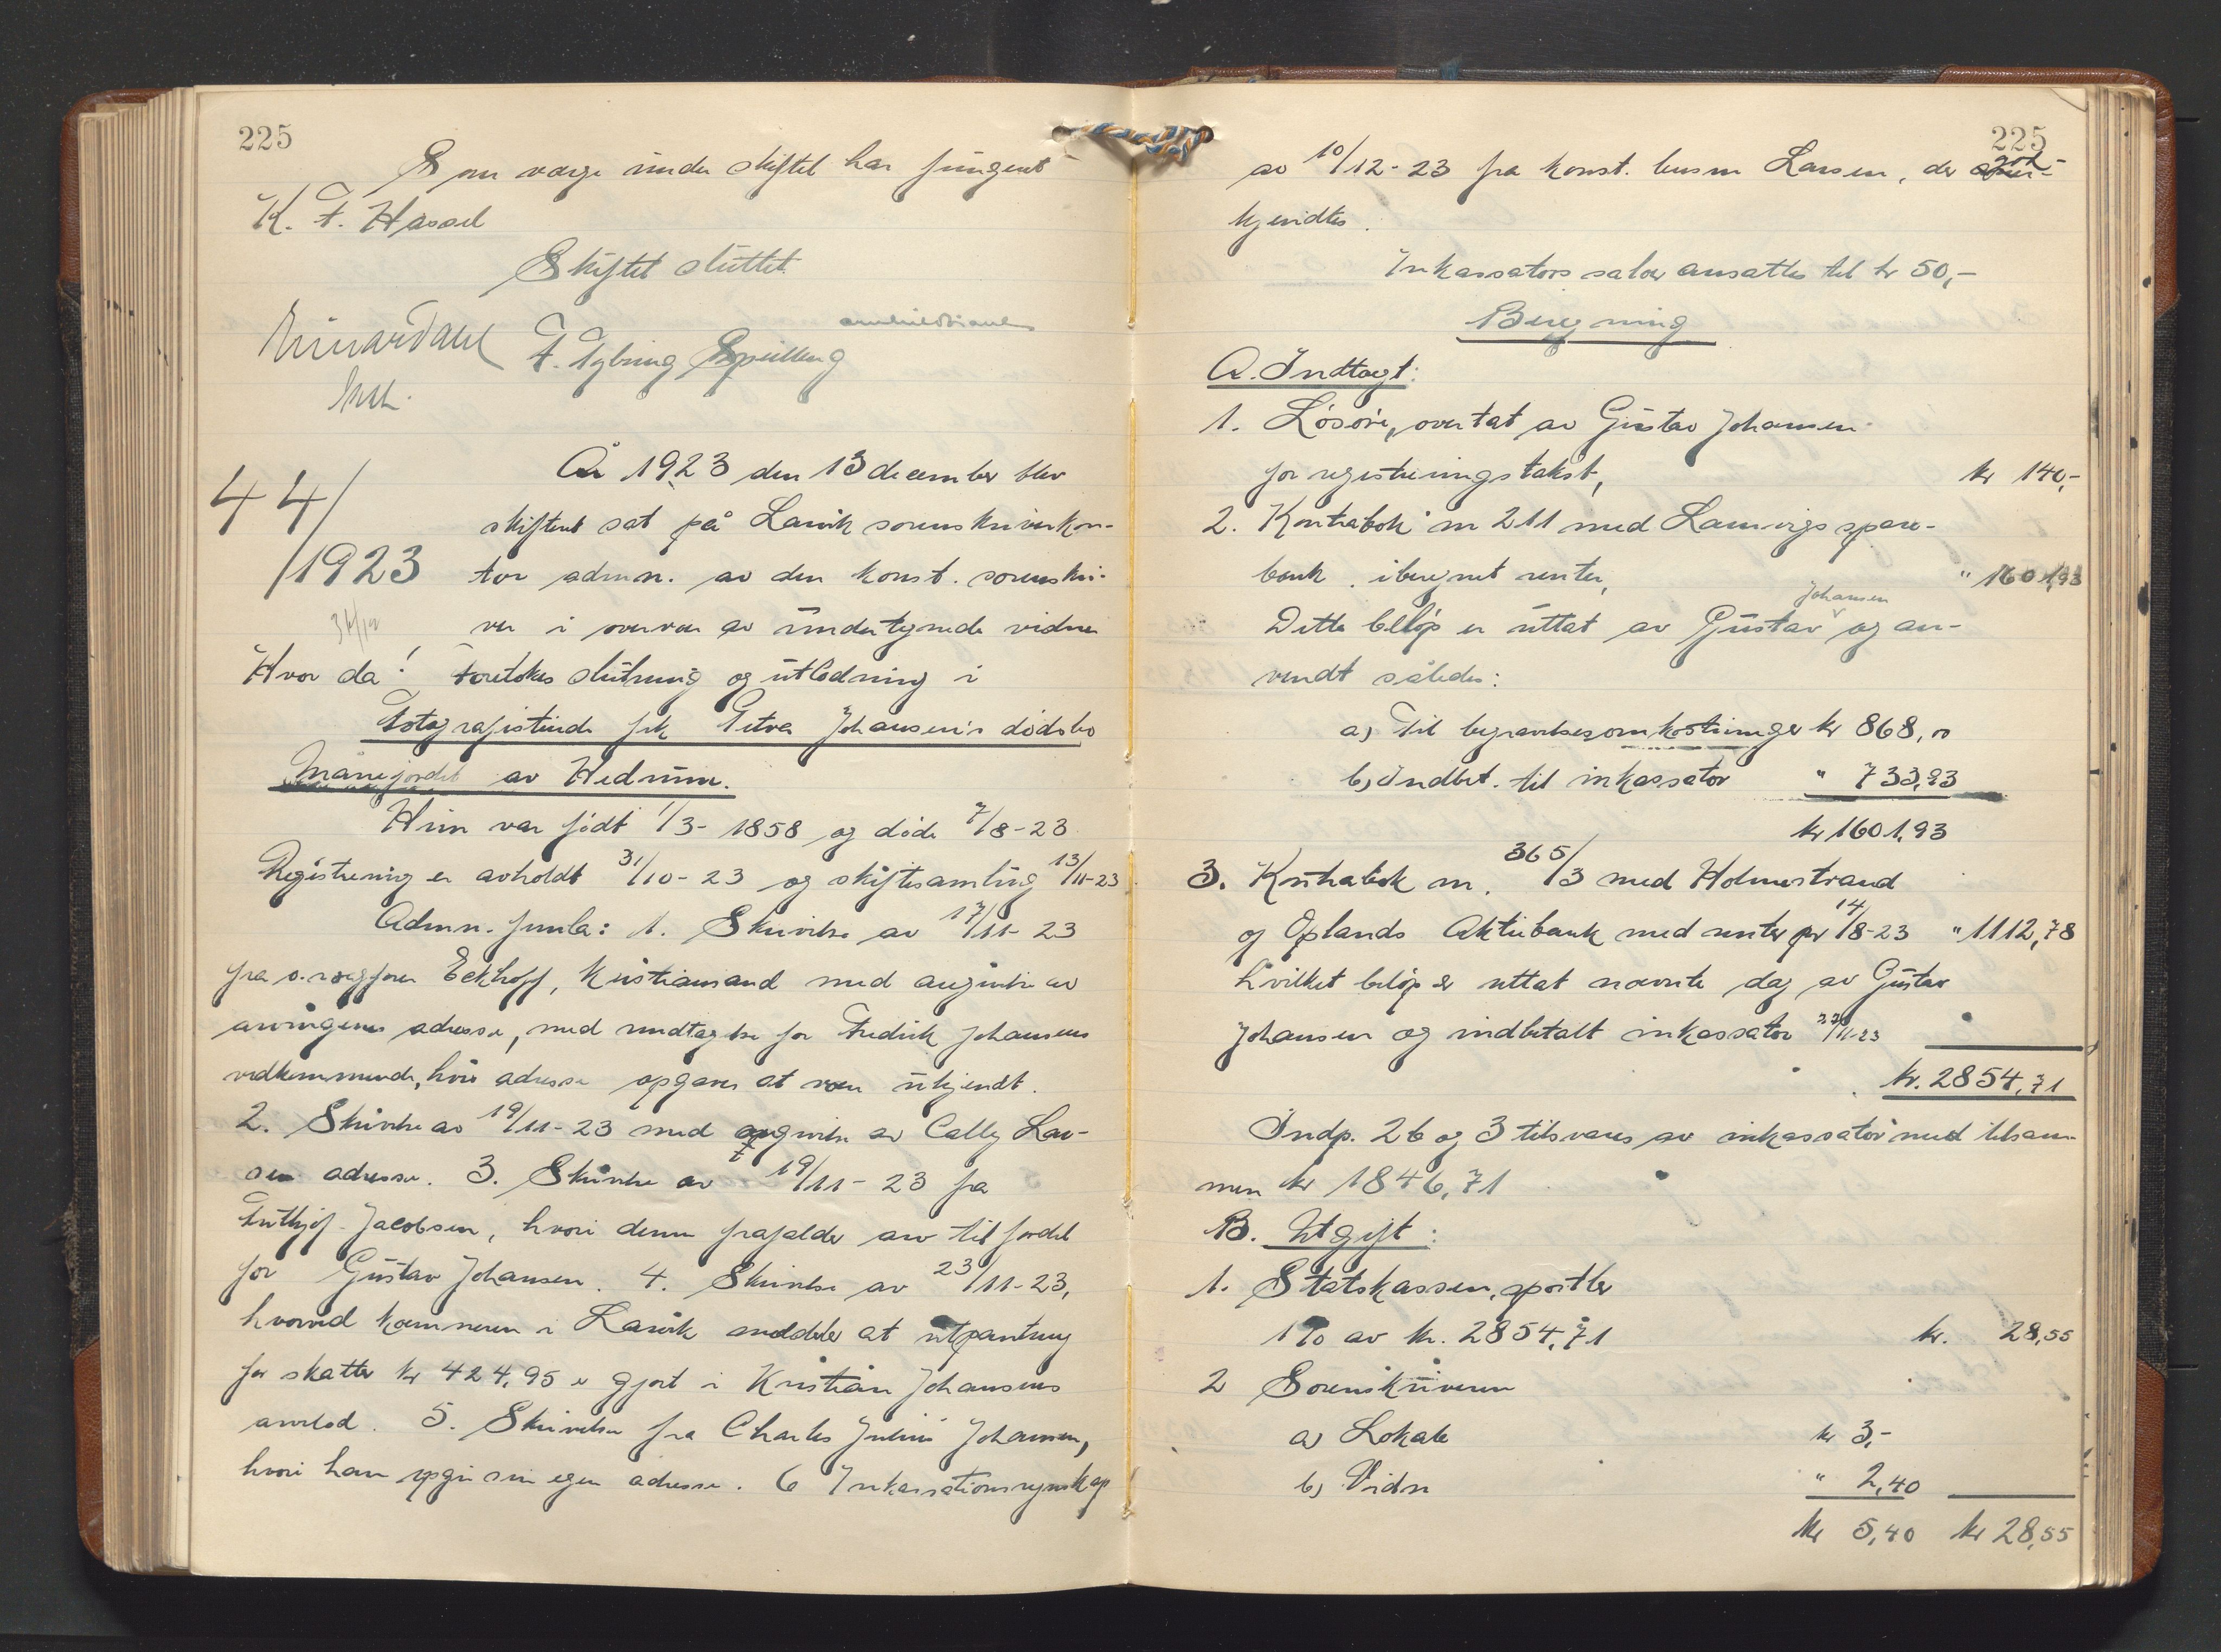 225
Som verge under skiftet har fungert
K. F. Hassel
Skiftet sluttet
Einar Dahl F. Nybring
44/1923
År 1923 den 13 december blev
skifteret sat på Larvik sorenskriverkon-
tor admn. av den konst. sorenskri-
ver i overvær av undertegnede vidner
Hvor da! Foretokes slutning og utlodning i
Fotografistinde frk Petra Johansen's dødsbo
Månejordet av Hedrum.
Hun var født 1/3-1858 og døde 7/8-23
Registrering er avholdt 31/10-23 og skiftesamling 13/11-23.
Admn. fremla: 1. Skrivelse av 17/11-23
fra o.r.sagfører Eckhoff, Kristiansand med angivelse av
arvingenes adresse, med undtagelse for Fredrik Johansens
vedkommende, hvis adresse opgaves at være ukjendt.
2. Skrivelse av 19/11-23 med opgivelse av Cally Lar-
sen adresse. 3. Skrivelse av 19/11-23 fra
Frithjof Jacobsen, hvori denne frafalder arv til fordel
for Gustav Johansen. 4. Skrivelse av 23/11-23,
hvorved kæmneren i Larvik meddeler at utpantning
for skatter kr 424,95 er gjort i Kristian Johansens
arvelod. 5. Skrivelse fra Charles Julius Johansen,
hvori han opgir sin egen adresse. 6 Inkassationsregnskap
225
av 10/12-23 fra konst. lensm Larsen, der god-
kjendtes.
Inkassators salær ansattes til kr 50,-
Beregning
A. Indtægt:
1. Løsøre, overtat av Gustav Johansen
for registreringstakst, kr 140,-
2. Kontrabok nr 211 med Laurvigs spare-
bank, iberegnet renter, " 1601,93
Dette beløp er uttat av Gustav Johansen og an-
vendt således:
a) Til begravelsesomkostninger kr 868,00
b) Indbet. til inkassator " 733,93
kr 1601,93
3. Kontrabok nr. 365/3 med Holmestrand
og Oplands Aktiebank med renter pr 14/8-23 " 1112,78
hvilket beløp er uttat nævnte dag av Gustav
Johansen og indbetalt inkassator 27/11-23
kr. 2854,71
Indp. 2b og 3 tilsvares av inkassator med tilsam-
men kr 1846,71
B. Utgift:
1. Statskassen, sportler
1% av kr. 2854,71 kr. 28,55
2 Sorenskriveren
a) Lokale kr 3,-
b) Vidn " 2,40
kr 5,40 kr 28,55